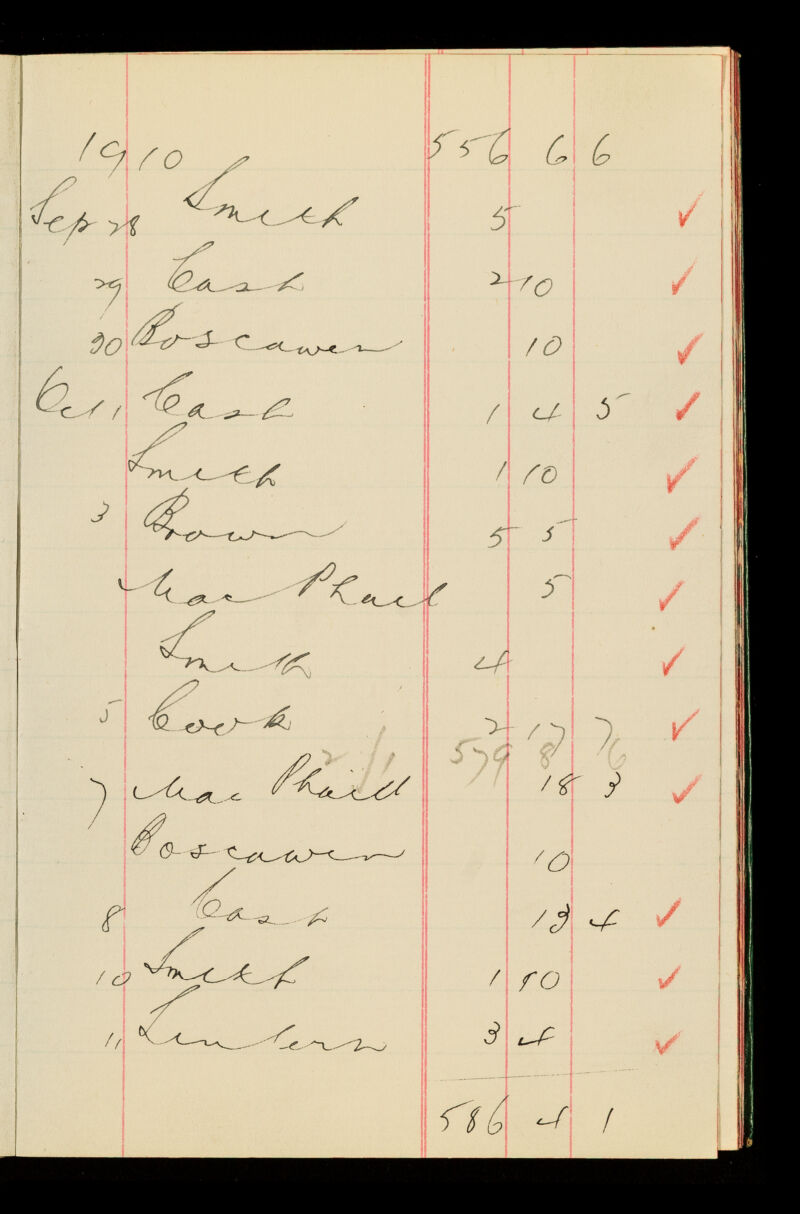 1910 556 6 6
Sep 28 Smith 5
29 Cash 2 10
30 Boscawen 10
Oct 1 Cash 1 4 5
Smith 1 10
3 Brown 5 5
MacPhail 5
Smith 4
5 Cook 2 17 7
579 8 6
7 MacPhail 18 3
Boscawen 10
8 Cash 13 4
10 Smith 1 10
11 Lintern 3 4
586 4 1